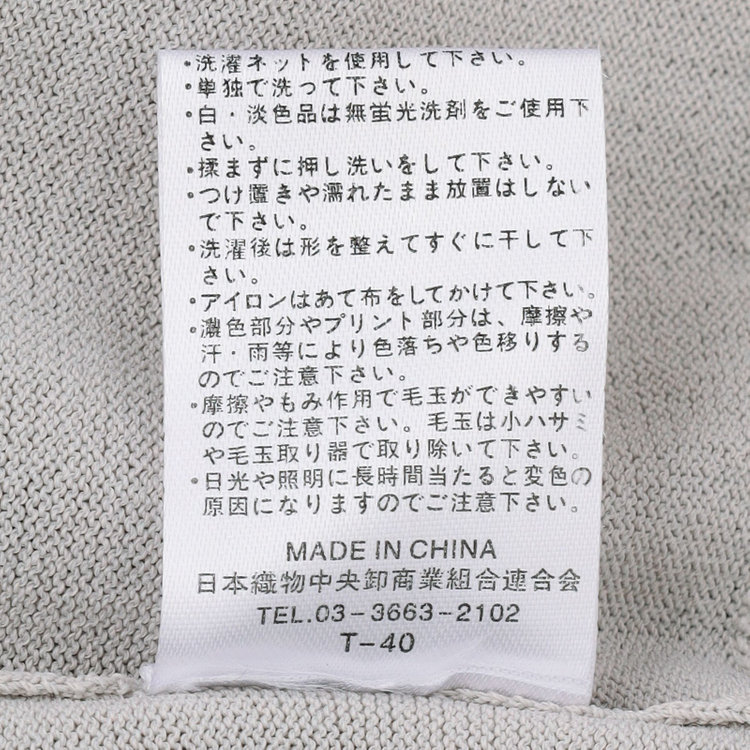 ・洗濯ネットを使用して下さい。
・単独で洗って下さい。
・白・淡色品は無蛍光洗剤をご使用下
さい。
・揉まずに押し洗いをして下さい。
・つけ置きや濡れたまま放置はしない
で下さい。
・洗濯後は形を整えてすぐに干して下
さい。
・アイロンはあて布をしてかけて下さい。
・濃色部分やプリント部分は、摩擦や
汗・雨等により色落ちや色移りする
のでご注意下さい。
・摩擦やもみ作用で毛玉ができやすい
のでご注意下さい。毛玉は小ハサミ
や毛玉取り器で取り除いて下さい。
・日光や照明に長時間当たると変色の
原因になりますのでご注意下さい。
MADE IN CHINA
日本織物中央卸商業組合連合会
TEL.03-3663-2102
T-40